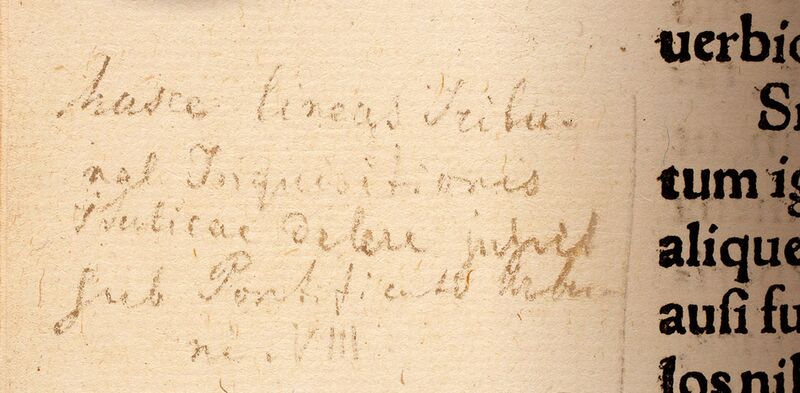 hasce lineas Tribu-
nal Inquisitionis
delere jussit
sub Pontificatu Urba-
ni. VIII
uerbio
tum ig
alique
auſi fu
los nil